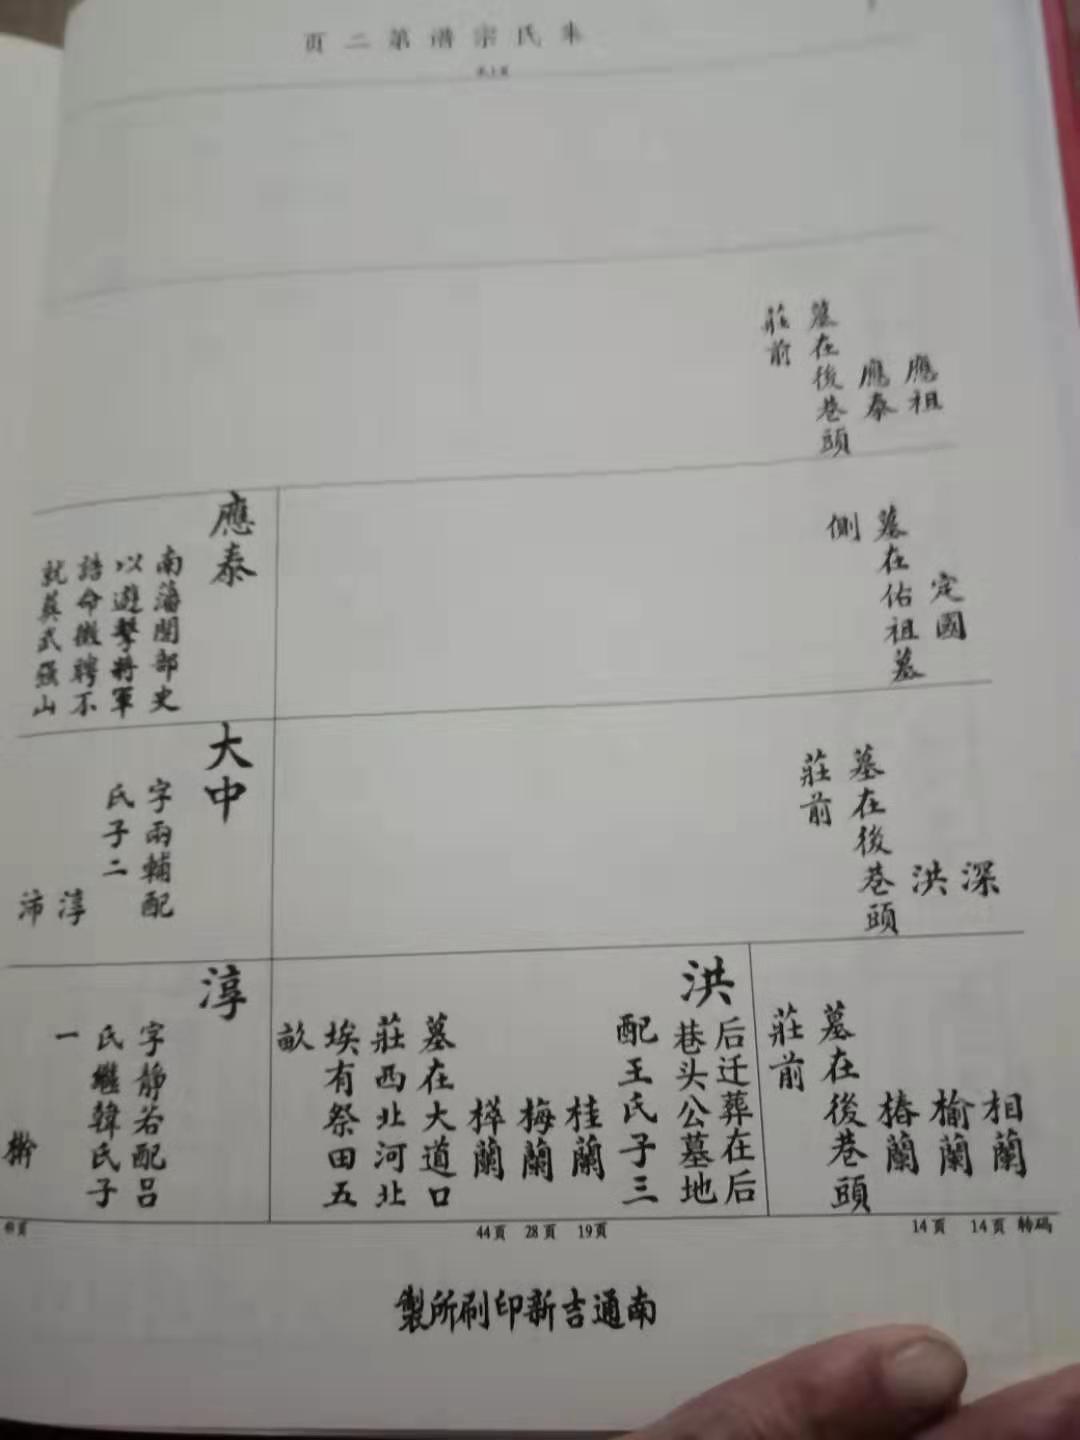 朱氏宗谱第二页
應祖
應泰
墓在後巷頭
莊前
定國
墓在佑祖墓
側
應泰
南藩閫部史
以遊擊將軍
誥命徵聘不
就葬武强山
深
洪
墓在後巷頭
莊前
大中
字兩輔配
氏子二
淳
沛
相蘭
榆蘭
椿蘭
墓在後巷頭
莊前
洪
后迁葬在后
巷头公墓地
配王氏子三
桂蘭
梅蘭
樺蘭
墓在大道口
莊西北河北
埃有祭田五
畝
淳
字静若配吕
氏繼韓氏子
一
转码
14页
14页
19页
28页
44页
南通吉新印刷所製